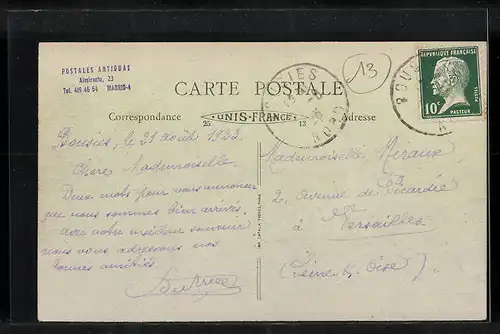 POSTALES ANTIGUAS
Tel. 419 46 64 MADRID-4
CARTE POSTALE
Correspondance
UNIS-FRANCE
Adresse
25 13
13
REPUBLIQUE FRANÇAISE
10c
PASTEUR
POSTES
Bousies, le 21 août 1923
Chère Mademoiselle
Deux mots pour vous annoncer
que nous sommes bien arrivés.
avec notre meilleur souvenir
nous vous adressons nos
bonnes amitiés
Mademoiselle Miraux
2, Avenue de Picardie
à Versailles
(Seine & Oise)